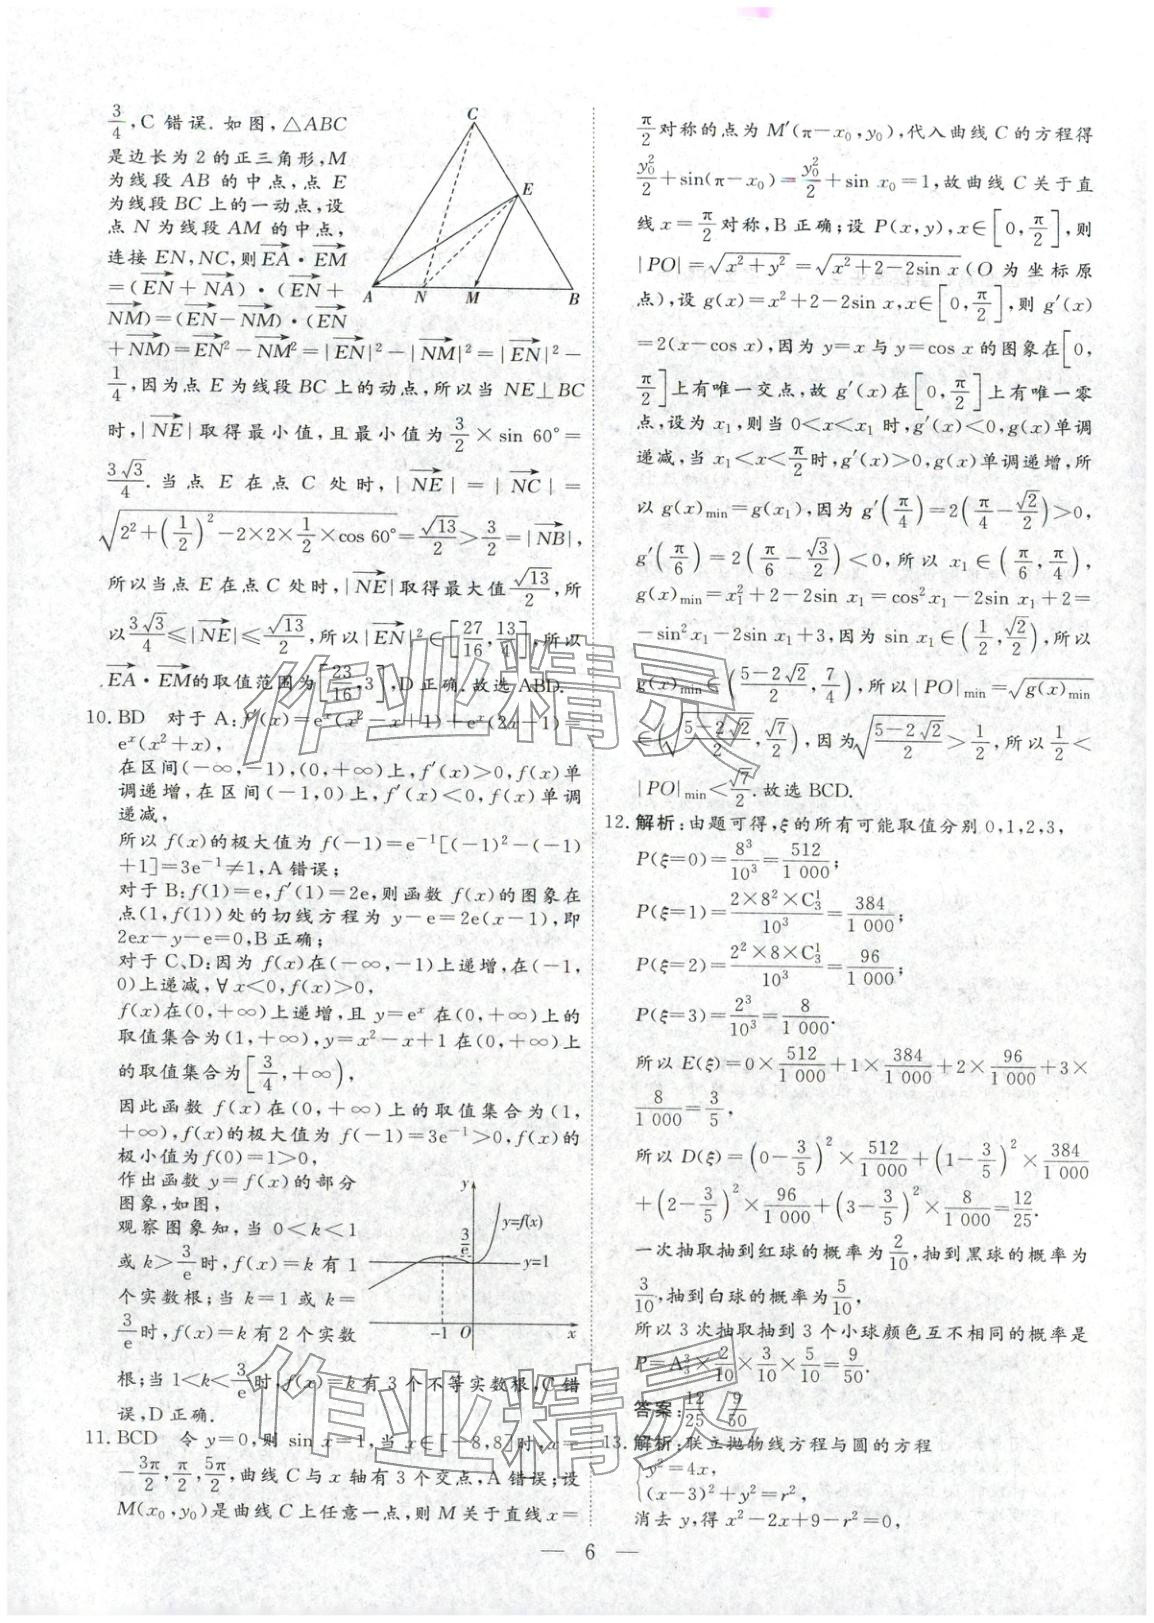 3/4,C 错误. 如图,△ABC
是边长为2的正三角形,M
为线段 AB 的中点,点 E
为线段BC上的一动点,设
点 N 为线段 AM 的中点,
连接 EN,NC,则EA·EM
=(EN+NA)·(EN+
NM)=(EN-NM)·(EN
+NM)=EN²-NM²=|EN|²-|NM|²=|EN|²-
1/4,因为点 E为线段 BC 上的动点,所以当 NE⊥BC
时,|NE|取得最小值,且最小值为3/2×sin 60°=
3√3/4.当点 E 在点 C 处时,|NE|=|NC|=
√(2²+(1/2)²-2×2×1/2×cos 60°)=√13/2>3/2=|NB|,
所以当点 E 在点 C 处时,|NE|取得最大值√13/2,所
以3√3/4≤|NE|≤√13/2,所以|EN|²∈[27/16,13/4],所以
EA·EM的取值范围为[23/16,3],D正确.故选ABD.
C
E
A N M B
10. BD 对于 A:f′(x)=eˣ(x²-x+1)+eˣ(2x-1)=
eˣ(x²+x),
在区间(-∞,-1),(0,+∞)上,f′(x)>0,f(x)单
调递增,在区间(-1,0)上,f′(x)<0,f(x)单调
递减,
所以 f(x)的极大值为 f(-1)=e⁻¹[(-1)²-(-1)
+1]=3e⁻¹≠1,A错误;
对于 B:f(1)=e,f′(1)=2e,则函数 f(x)的图象在
点(1,f(1))处的切线方程为 y-e=2e(x-1),即
2ex-y-e=0,B正确;
对于C、D:因为 f(x)在(-∞,-1)上递增,在(-1,
0)上递减,∀x<0,f(x)>0,
f(x)在(0,+∞)上递增,且 y=eˣ 在(0,+∞)上的
取值集合为(1,+∞),y=x²-x+1在(0,+∞)上
的取值集合为[3/4,+∞),
因此函数 f(x)在(0,+∞)上的取值集合为(1,
+∞),f(x)的极大值为 f(-1)=3e⁻¹>0,f(x)的
极小值为f(0)=1>0,
作出函数 y=f(x)的部分
图象,如图,
观察图象知,当 0<k<1
或 k>3/e时,f(x)=k 有 1
个实数根;当 k=1 或 k=
3/e时,f(x)=k有2个实数
根;当 1<k<3/e时,f(x)=k有3个不等实数根,C错
误,D正确.
y
y=f(x)
3/e
y=1
-1 O x
11. BCD 令 y=0,则 sin x=1,当 x∈[-8,8]时,x=
-3π/2,π/2,5π/2,曲线C与x轴有3个交点,A错误;设
M(x₀,y₀)是曲线C上任意一点,则 M关于直线x=
π/2对称的点为 M′(π-x₀,y₀),代入曲线 C 的方程得
y₀²/2+sin(π-x₀)=y₀²/2+sin x₀=1,故曲线 C 关于直
线x=π/2对称,B正确;设 P(x,y),x∈[0,π/2],则
|PO|=√(x²+y²)=√(x²+2-2sin x)(O 为坐标原
点),设 g(x)=x²+2-2sin x,x∈[0,π/2],则 g′(x)
=2(x-cos x),因为 y=x与y=cos x的图象在[0,
π/2]上有唯一交点,故 g′(x)在[0,π/2]上有唯一零
点,设为 x₁,则当 0<x<x₁ 时,g′(x)<0,g(x)单调
递减,当 x₁<x<π/2时,g′(x)>0,g(x)单调递增,所
以 g(x)min=g(x₁),因为 g′(π/4)=2(π/4-√2/2)>0,
g′(π/6)=2(π/6-√3/2)<0,所以 x₁∈(π/6,π/4),
g(x)min=x₁²+2-2sin x₁=cos²x₁-2sin x₁+2=
-sin²x₁-2sin x₁+3,因为 sin x₁∈(1/2,√2/2),所以
g(x)min∈((5-2√2)/2,7/4),所以|PO|min=√g(x)min
∈(√((5-2√2)/2),√7/2),因为√((5-2√2)/2)>1/2,所以1/2<
|PO|min<√7/2.故选BCD.
12. 解析:由题可得,ξ的所有可能取值分别0,1,2,3,
P(ξ=0)=8³/10³=512/1 000;
P(ξ=1)=2×8²×C₃¹/10³=384/1 000;
P(ξ=2)=2²×8×C₃¹/10³=96/1 000;
P(ξ=3)=2³/10³=8/1 000.
所以 E(ξ)=0×512/1 000+1×384/1 000+2×96/1 000+3×
8/1 000=3/5,
所以 D(ξ)=(0-3/5)²×512/1 000+(1-3/5)²×384/1 000
+(2-3/5)²×96/1 000+(3-3/5)²×8/1 000=12/25.
一次抽取抽到红球的概率为2/10,抽到黑球的概率为
3/10,抽到白球的概率为5/10,
所以3次抽取抽到3个小球颜色互不相同的概率是
P=A₃³×2/10×3/10×5/10=9/50.
答案:12/25 9/50
13. 解析:联立抛物线方程与圆的方程
{y²=4x,
(x-3)²+y²=r²,
消去 y,得 x²-2x+9-r²=0,
— 6 —
作业精灵
作业精灵